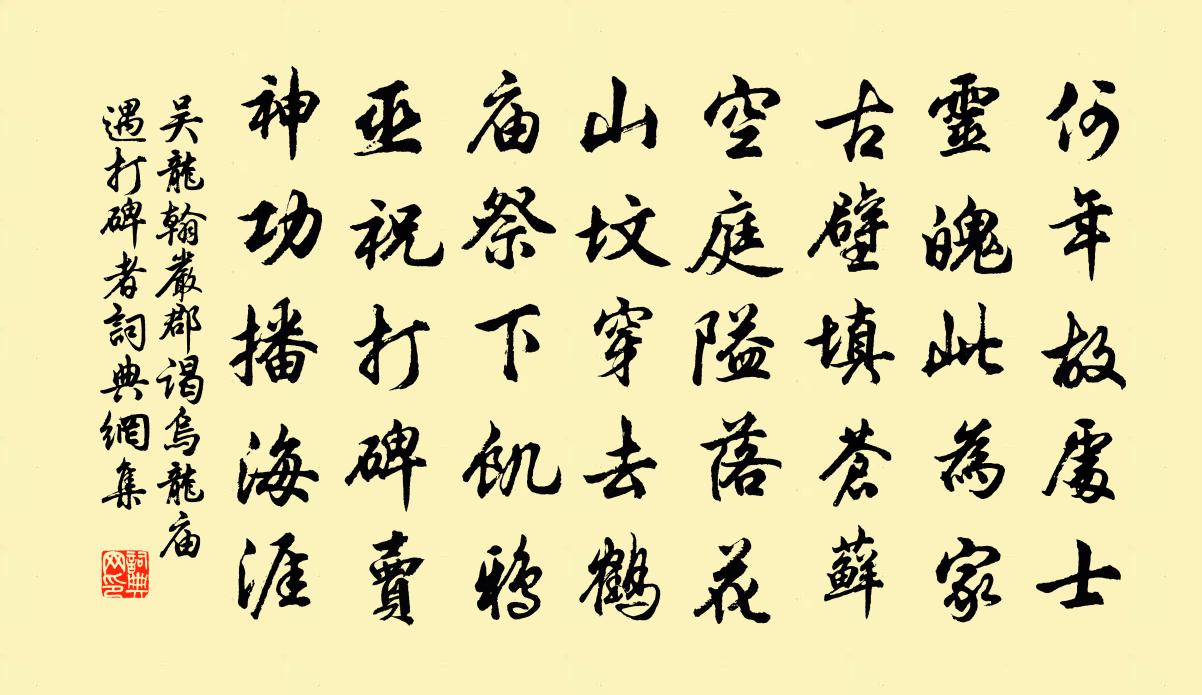 何年故處士
靈魄此為家
古壁填蒼蘚
空庭隘落花
山坟穿去鶴
庙祭下飢鴉
巫祝打碑賣
神功播海涯
吴龍翰嚴郡谒烏龍庙
遇打碑者詞典網集
詞典